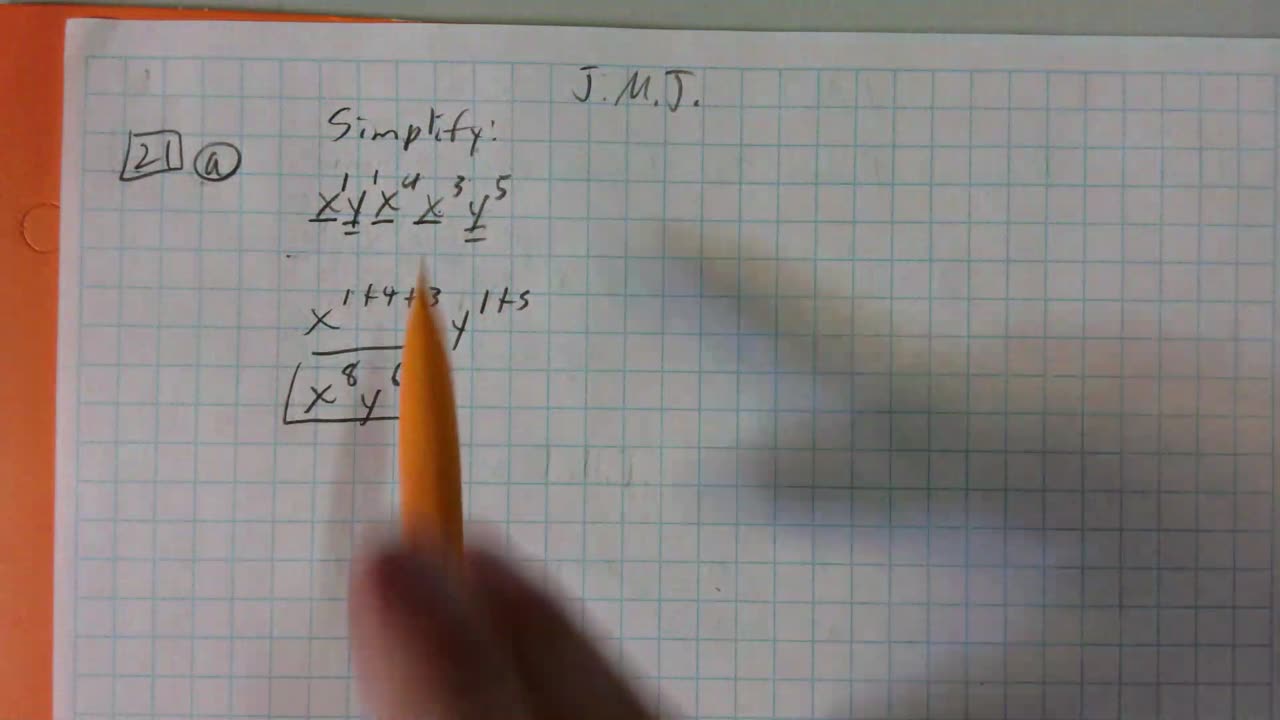 J.M.J.
Simplify:
21 a
x¹y¹x⁴x³y⁵
x^{1+4+3} y^{1+5}
x⁸y⁶